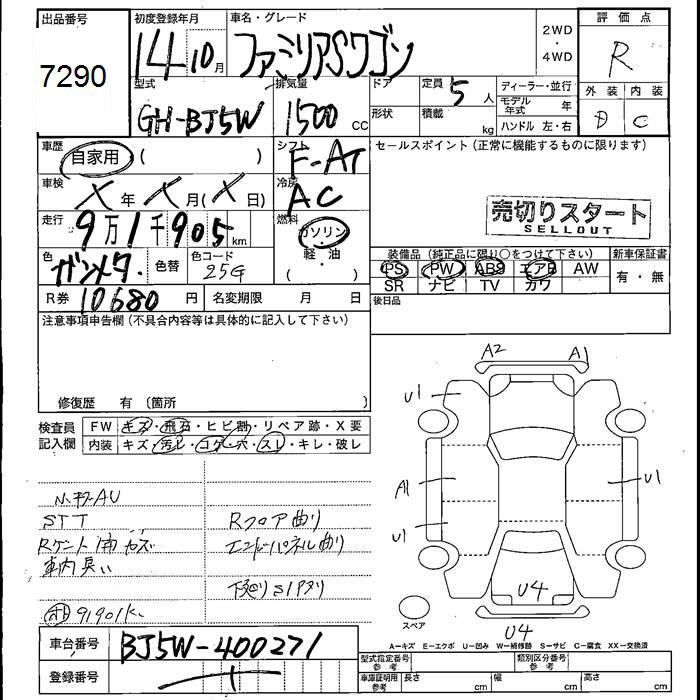 出品番号
7290
初度登録年月
14 10 月
車名・グレード
ファミリアSワゴン
2WD
・
4WD
評価点
R
外装 内装
D C
型式
GH-BJ5W
排気量
1500 cc
ドア
形状
定員 5 人
積載 kg
ディーラー・並行
モデル年式 年
ハンドル 左・右
車歴
自家用 ( )
シフト
F-AT
セールスポイント (正常に機能するものに限ります)
車検
X 年 X 月 (X 日)
冷房
AC
売切りスタート
SELLOUT
走行
9万1千905 km
燃料
ガソリン
・
軽・油
( )
色
ガンメタ.
色替
色コード
25G
装備品 (純正品に限り○をつけて下さい)
PS PW ABS エアB AW
SR ナビ TV カワ
新車保証書
有・無
R券 10680 円
名変期限 月 日
後日品
注意事項申告欄 (不具合内容等は具体的に記入して下さい)
修復歴 有 〔箇所 〕
検査員
記入欄
FW キズ・飛石・ヒビ割・リペア跡・X要
内装 キズ・汚レ・コゲ・穴・スレ・キレ・破レ
STT
Rフロア曲り
エンドパネル曲り
車内臭い
91901K
A2
A1
U1
A1
U1
U1
U4
U4
スペア
A=キズ E=エクボ U=凹み W=補修跡 S=サビ C=腐食 XX=交換済
車台番号
BJ5W-400271
登録番号
型式指定番号
参考
類別区分番号
参考
車庫証明用
参考
長さ cm
幅 cm
高さ cm